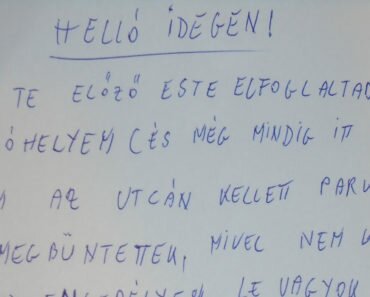 HELLÓ IDEGEN!
TE ELŐZŐ ESTE ELFOGLALTAD
ÓHELYEM (ÉS MÉG MINDIG ITT
AZ UTCÁN KELLETT PARK
MEGBÜNTETTEK, MIVEL NEM
LE VAGYOK